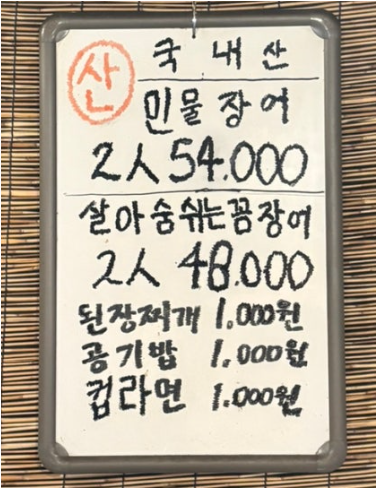 산 국내산
민물장어
2人 54.000
살아숨쉬는꼼장어
2人 48.000
된장찌개 1.000원
공기밥 1.000원
컵라면 1.000원